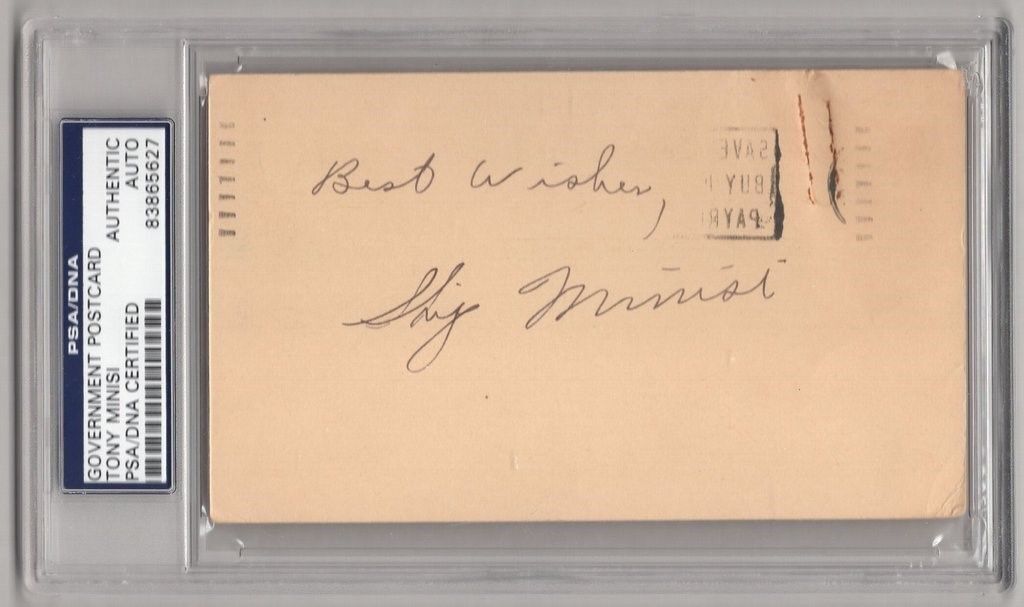 PSA/DNA
GOVERNMENT POSTCARD
TONY MINISI
PSA/DNA CERTIFIED
AUTHENTIC
AUTO
83865627
Best Wishes,
Skip Minisi
SAVE
BUY
PAYR